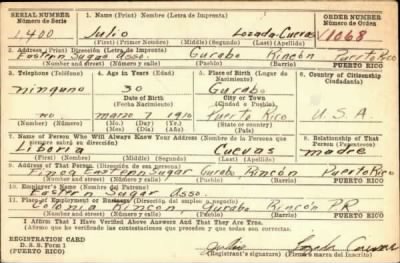 SERIAL NUMBER
Número de Serie
1. Name (Print) Nombre (Letra de Imprenta)
ORDER NUMBER
Número de Orden
1,400
Julio Lozada-Cuevas
11068
(First) (Primer Nombre) (Middle) (Segundo) (Last) (Apellido)
2. Address (Print) Dirección (Letra de Imprenta)
Eastern Sugar Asso. Gurabo Rincón Puerto Rico
(Number and street) (Número y calle) (Town) (Pueblo) (Barrio) PUERTO RICO
3. Telephone (Teléfono)
4. Age in Years (Edad)
5. Place of Birth (Lugar de Nacimiento)
6. Country of Citizenship
Ciudadanía)
ninguno
30
Gurabo
Date of Birth
(Fecha Nacimiento)
City or Town
(Ciudad o Pueblo)
no
marzo 7 1910
Puerto Rico
U.S.A.
(Mo.) (Day) (Yr.)
(Mes) (Día) (Año)
(State or country)
(Estado o país)
7. Name of Person Who Will Always Know Your Address (Nombre de la Persona que
siempre sabrá su dirección)
8. Relationship of That
Person (Parentesco)
Liboria Cuevas madre
(First) (Nombre) (Middle) (Segundo) (Last) (Apellido)
9. Address of That Person (Dirección de esa persona)
Finca Eastern Sugar Gurabo Rincón Puerto Rico
(Number and street) (Número y calle) (Town) (Pueblo) (Barrio) PUERTO RICO
10. Employer's Name (Nombre del Patrono)
Eastern Sugar Asso.
11. Place of Employment or Business (Dirección del empleo o negocio)
Colonia Rincon Gurabo Rincón PR
(Number and street) (Número y calle) (Town) (Pueblo) (Barrio) PUERTO RICO
I Affirm That I Have Verified Above Answers and That They Are True.
(Afirmo que he verificado las contestaciones que preceden y que son ciertas)
REGISTRATION CARD
D. S. S. Form 1
(PUERTO RICO)
Julio Lozada Cuevas
(Registrant's signature) (Firma o marca del inscrito)